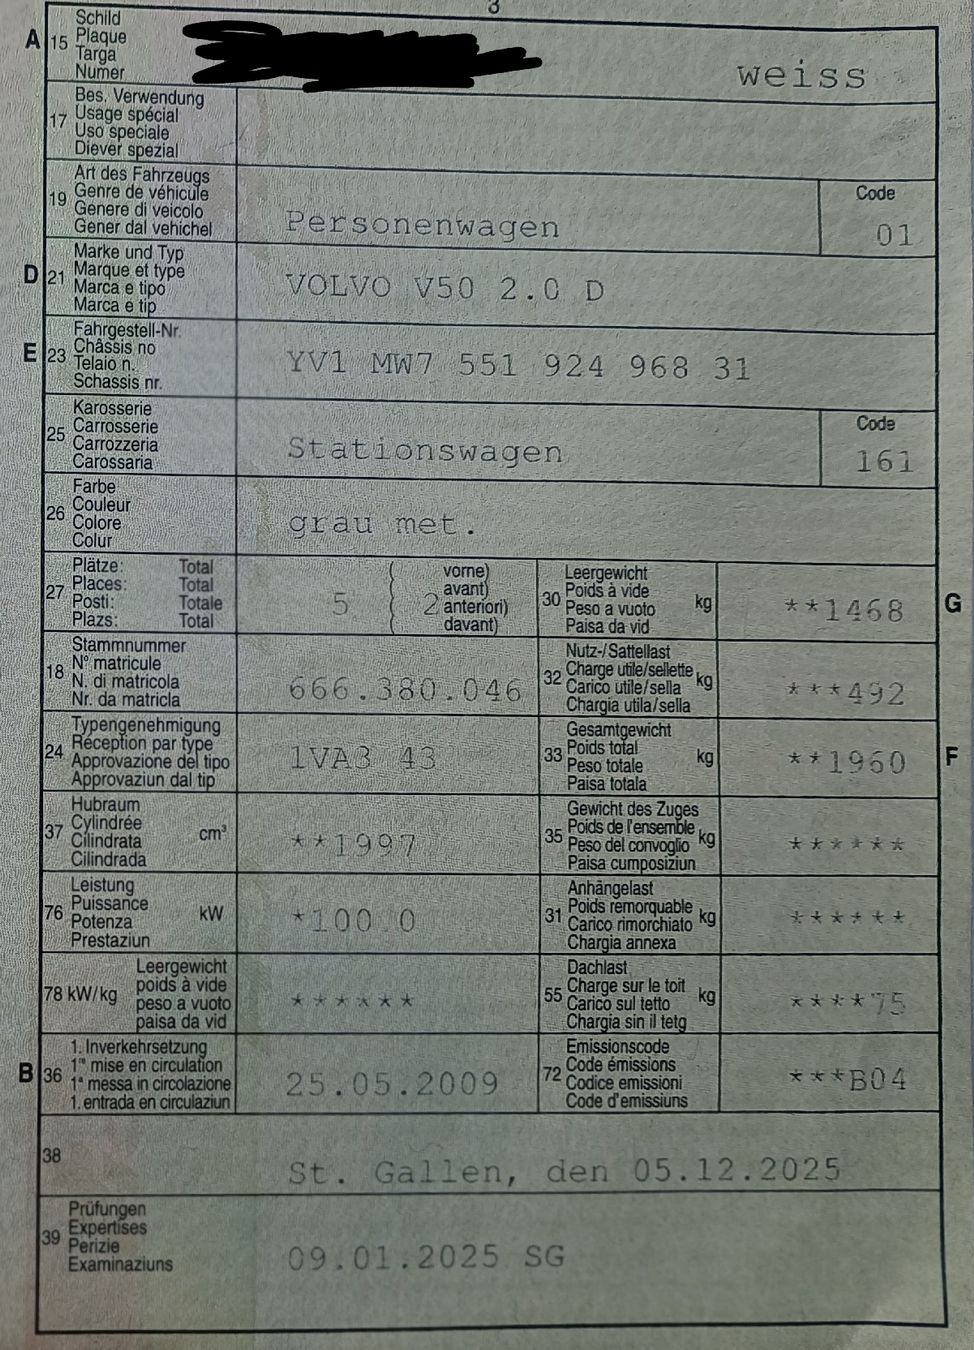 3
A 15 Schild
Plaque
Targa
Numer
weiss
17 Bes. Verwendung
Usage spécial
Uso speciale
Diever spezial
19 Art des Fahrzeugs
Genre de véhicule
Genere di veicolo
Gener dal vehichel
Personenwagen
Code
01
D 21 Marke und Typ
Marque et type
Marca e tipo
Marca e tip
VOLVO V50 2.0 D
E 23 Fahrgestell-Nr.
Châssis no
Telaio n.
Schassis nr.
YV1 MW7 551 924 968 31
25 Karosserie
Carrosserie
Carrozzeria
Carossaria
Stationswagen
Code
161
26 Farbe
Couleur
Colore
Colur
grau met.
27 Plätze: Total
Places: Total
Posti: Totale
Plazs: Total
5 ( 2 vorne)
( avant)
( anteriori)
( davant)
30 Leergewicht
Poids à vide
Peso a vuoto kg
Paisa da vid
**1468
G
18 Stammnummer
N° matricule
N. di matricola
Nr. da matricla
666.380.046
32 Nutz-/Sattellast
Charge utile/sellette kg
Carico utile/sella
Chargia utila/sella
***492
24 Typengenehmigung
Réception par type
Approvazione del tipo
Approvaziun dal tip
1VA3 43
33 Gesamtgewicht
Poids total
Peso totale kg
Paisa totala
**1960
F
37 Hubraum
Cylindrée
Cilindrata cm³
Cilindrada
**1997
35 Gewicht des Zuges
Poids de l'ensemble kg
Peso del convoglio
Paisa cumposiziun
******
76 Leistung
Puissance
Potenza kW
Prestaziun
*100 0
31 Anhängelast
Poids remorquable
Carico rimorchiato kg
Chargia annexa
******
78 kW/kg Leergewicht
poids à vide
peso a vuoto
paisa da vid
******
55 Dachlast
Charge sur le toit
Carico sul tetto kg
Chargia sin il tetg
****75
B 36 1. Inverkehrsetzung
1re mise en circulation
1a messa in circolazione
1. entrada en circulaziun
25.05.2009
72 Emissionscode
Code émissions
Codice emissioni
Code d'emissiuns
***B04
38
St. Gallen, den 05.12.2025
39 Prüfungen
Expertises
Perizie
Examinaziuns
09.01.2025 SG